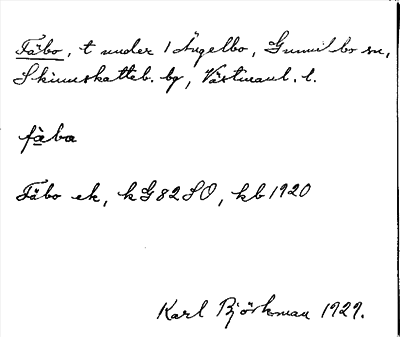 Fäbo, t under 1 Ängelbo, Gunnilbo sn,
Skinnskatteb. bg, Västmanl. l.
fàba
Fäbo ek, k G82SO, kb 1920
Karl Björkman 1929.